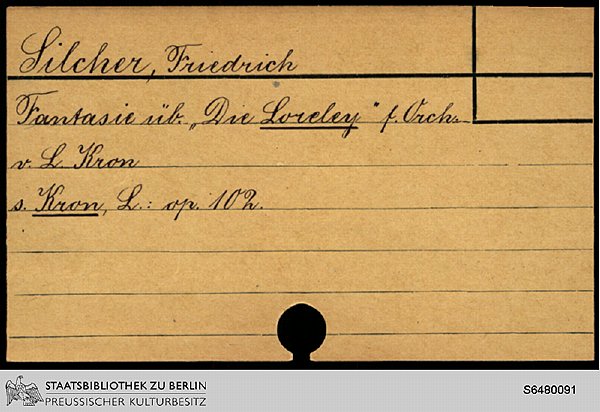 Silcher, Friedrich
Fantasie üb. „Die Loreley“ f. Orch.
v. L. Kron
s. Kron, L.: op. 102.
STAATSBIBLIOTHEK ZU BERLIN
PREUSSISCHER KULTURBESITZ
S6480091